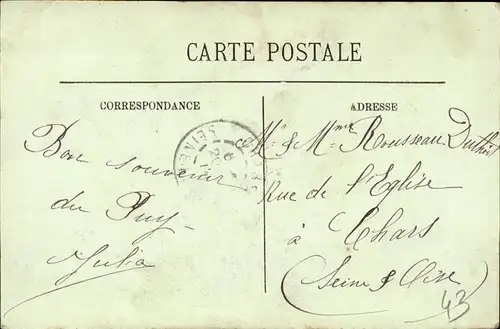 CARTE POSTALE
CORRESPONDANCE
ADRESSE
Bon souvenir
du Puy
Julia
Mr & Mme Rousseau Duthil
Rue de l'Eglise
à Chars
(Seine & Oise)
43